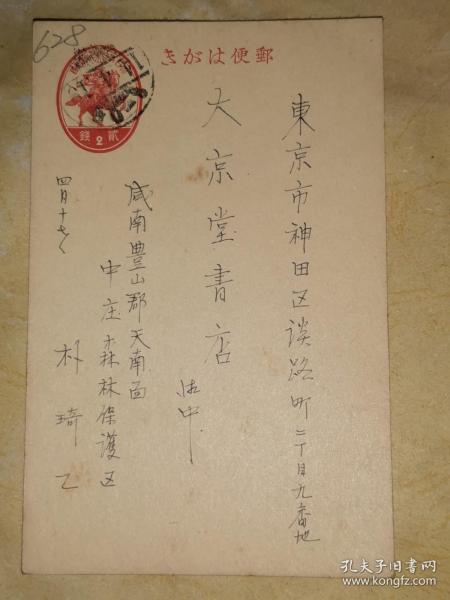 628
郵便はがき
貳錢
2
東京市神田区淡路町二丁目九番地
大京堂書店
御中
咸南豊山郡天南面
中庄森林保護区
朴琦乙
四月十七
孔夫子旧书网
www.kongfz.com